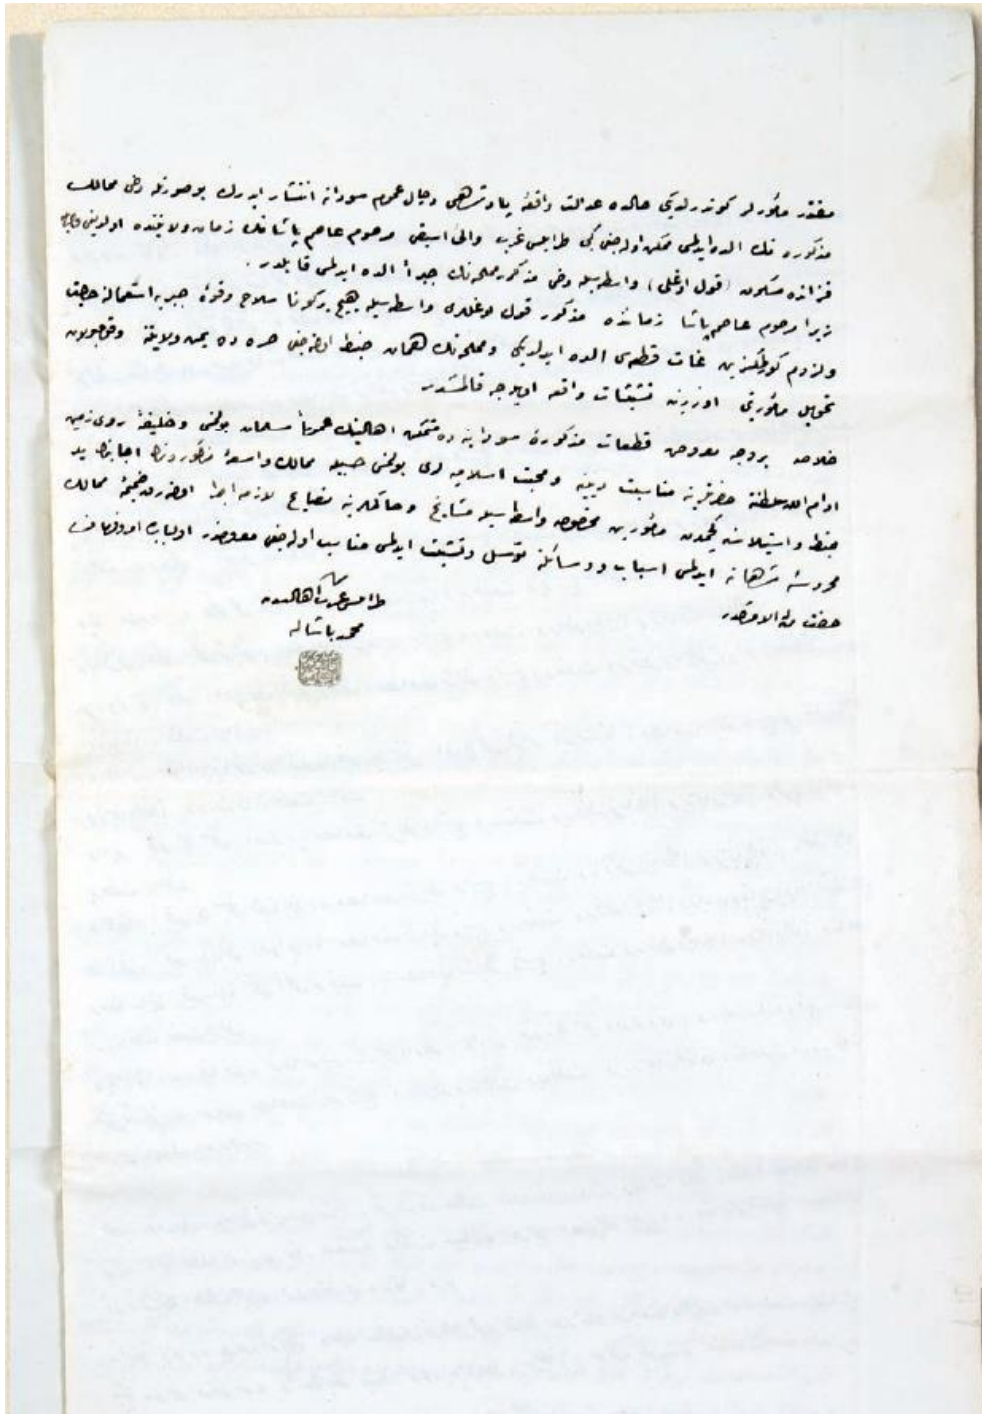 مقتدر مأمورلر كوندرلديكى حالده عدالت واقعۀ پادشاهى دخى عموم سودانه انتشار ايدرك بوصورتله دخى ممالك
مذكوره نك الده ايدلمسى ممكن اوله جغى كبى طرابلس غرب والئ اسبقى مرحوم عاصم پاشانك زمان ولايتنده اولدوغى
فزانده مسكون (قول اوغلى) واسطه سيله دخى مذكور مملحه نك جبراً الده ايدلمسى قابلدر.
زيرا مرحوم عاصم پاشا زماننده مذكور قول اوغللرى واسطه سيله هيچ بركونا سلاح وقوۀ جبريه استعمالنه حاجت
ولزوم كورلمكسزين غات قطعه سى الده ايدلديكى ومملحه نك همان ضبط اولنه جغى صره ده يمن ولايتنه
تحويل مأموريتى اوزرينه تشبثات واقعه اويله جه قالمشدر
خلاصه بروجه معروض قطعات مذكورۀ سودانيه ده متمكن اهالينك عموماً مسلمان بولنمسى وخليفۀ روى زمين
ادام الله سلطنته حضرتلرينه مناسبت دينيه ومحبت اسلاميه لرى بولنمسى حسبيله ممالك واسعۀ
ضبط واستيلاسنه مأمورين مخصوصه واسطه سيله مشايخ وحاكملرينه نصايح لازمه اجرا اولنه رق ضميمۀ ممالك
محروسۀ شاهانه ايدلمسى اسباب ووسائلنه توسل وتشبث ايدلمسى مناسب اوله جغى معروضدر اولبابده امر وفرمان
حضرت من له الامرڭدر
طرابلس غرب اهاليسندن
محمد پاشا